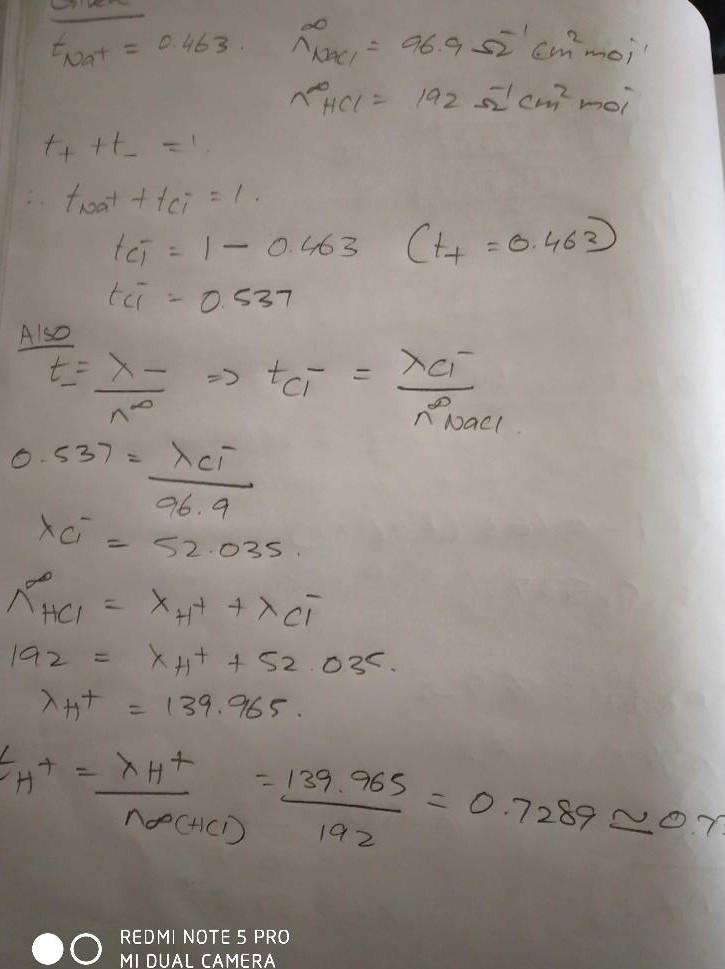 Given
t_Na+ = 0.463. Λ∞_NaCl = 96.9 Ω⁻¹ cm² mol⁻¹
Λ∞_HCl = 192 Ω⁻¹ cm² mol⁻
t₊ + t₋ = 1.
∴ t_Na+ + t_Cl⁻ = 1.
t_Cl⁻ = 1 − 0.463 (t₊ = 0.463)
t_Cl⁻ = 0.537
Also
t₋ = λ₋ / Λ∞ => t_Cl⁻ = λ_Cl⁻ / Λ∞_NaCl.
0.537 = λ_Cl⁻ / 96.9
λ_Cl⁻ = 52.035.
Λ∞_HCl = λ_H+ + λ_Cl⁻
192 = λ_H+ + 52.035.
λ_H+ = 139.965.
t_H+ = λ_H+ / Λ∞(HCl) = 139.965 / 192 = 0.7289 ≃ 0.7
REDMI NOTE 5 PRO
MI DUAL CAMERA